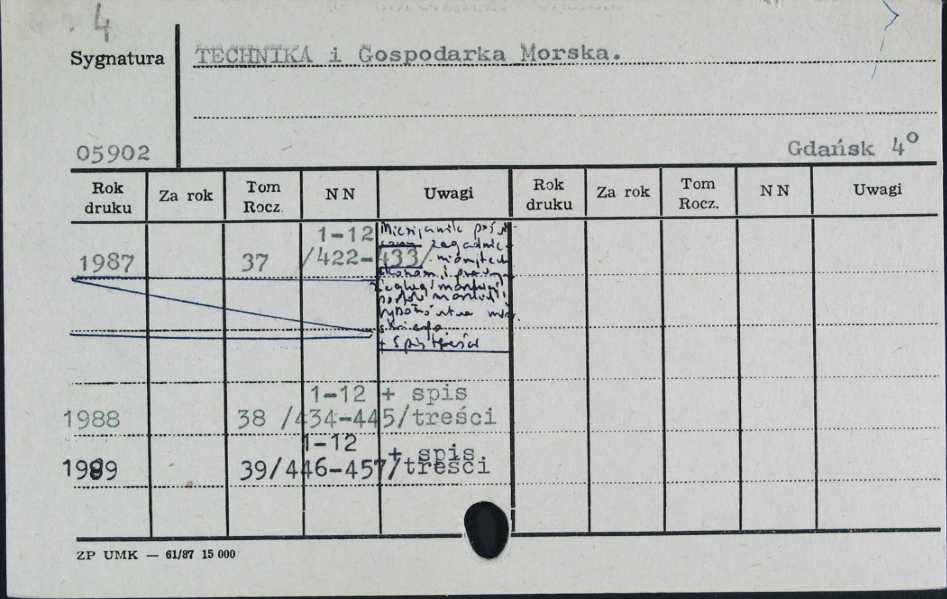 4
Sygnatura TECHNIKA i Gospodarka Morska.
05902 Gdańsk 4°
Rok druku Za rok Tom Rocz. N N Uwagi Rok druku Za rok Tom Rocz. N N Uwagi
1-12
1987 37 /422-433/
zagadnie-
+ spis treści
1-12 + spis
1988 38 /434-445/treści
1-12 + spis
1989 39/446-457/treści
ZP UMK — 61/87 15 000